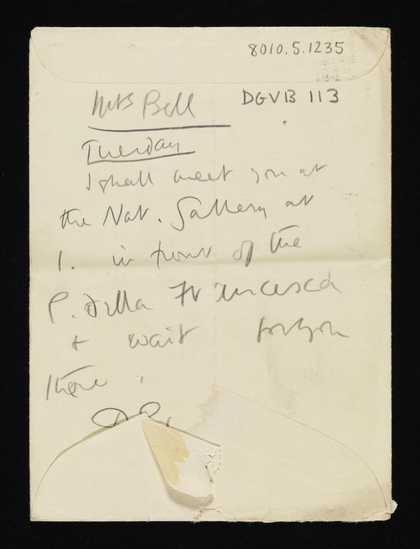 8010.5.1235
Mrs Bell
DGVB 113
Tuesday
I shall meet you at
the Nat. Gallery at
1. in front of the
P. della Francesca
+ wait for you
there.
DG.